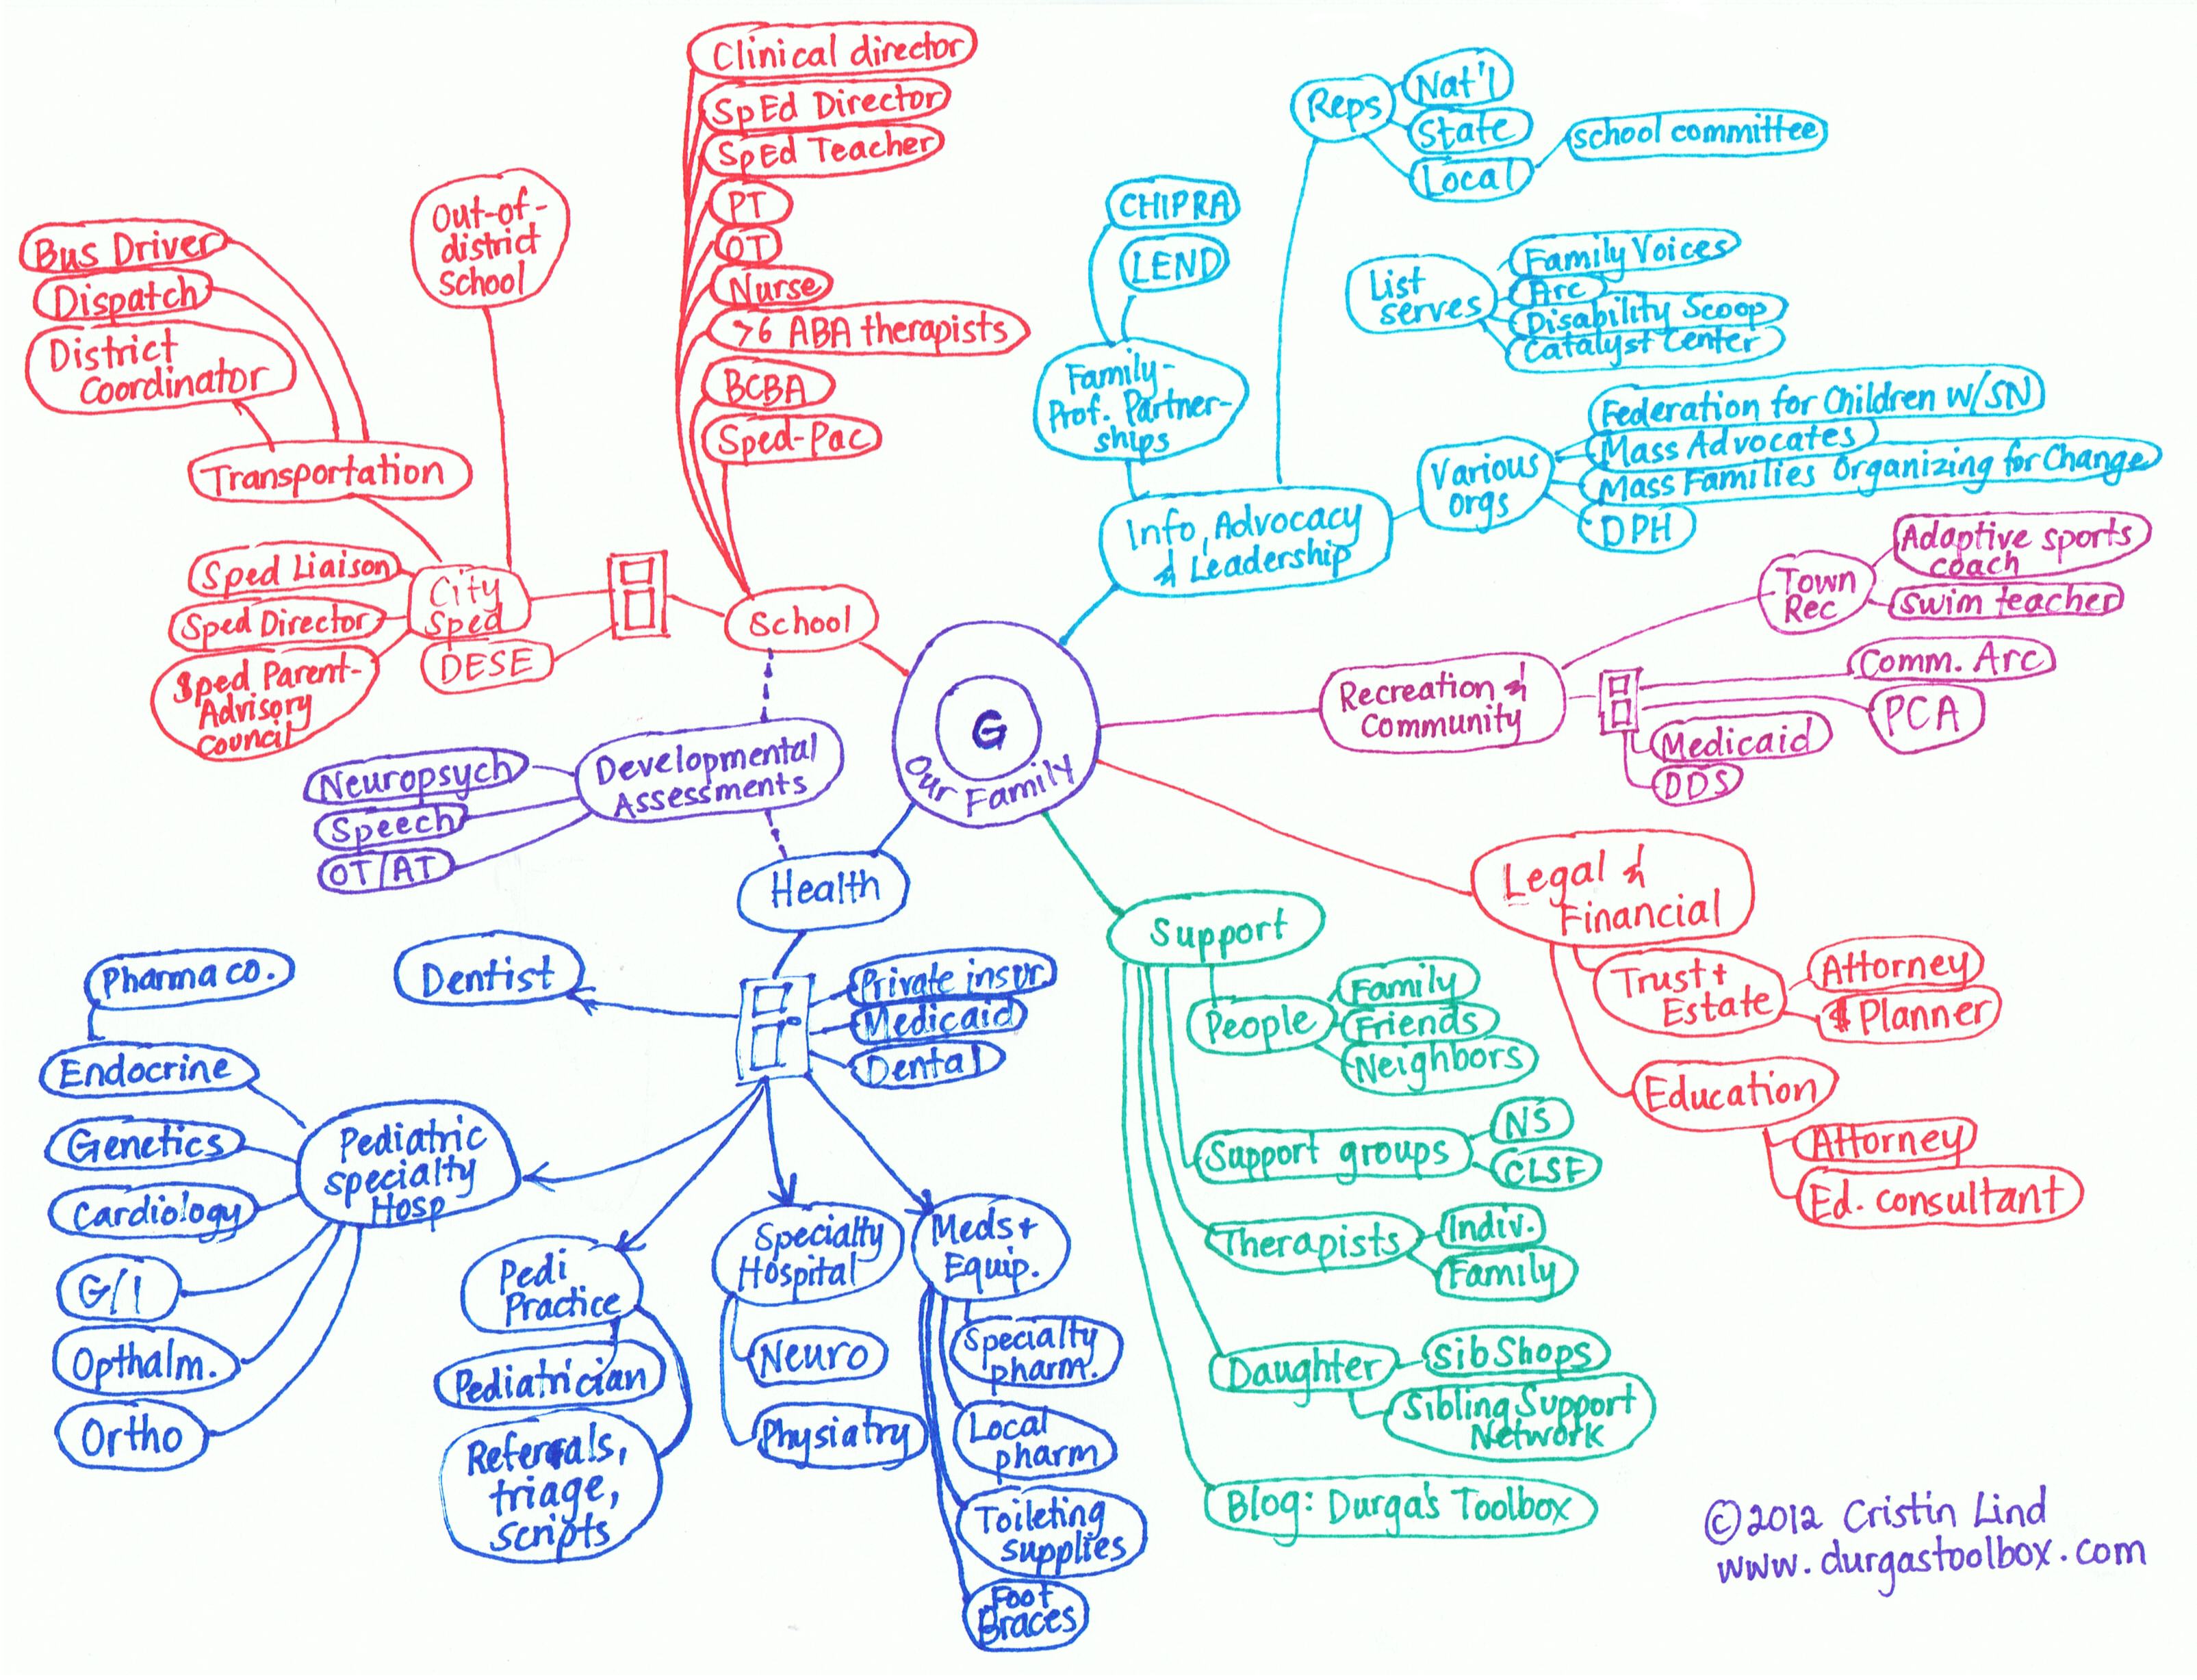 Clinical director
SpEd Director
SpEd Teacher
PT
OT
Nurse
>6 ABA therapists
BCBA
Sped-Pac
Out-of-
district
School
Bus Driver
Dispatch
District
Coordinator
Transportation
Sped Liaison
Sped Director
Sped Parent-
Advisory
Council
City
Sped
DESE
School
Reps
Nat'l
State
Local
school committee
CHIPRA
LEND
Family-
Prof. Partner-
ships
List
serves
Family Voices
Arc
Disability Scoop
Catalyst Center
Various
orgs
Federation for Children w/SN
Mass Advocates
Mass Families Organizing for Change
DPH
Info, Advocacy
& Leadership
Town
Rec
Adaptive sports
coach
swim teacher
Recreation &
Community
Comm. Arc
PCA
Medicaid
DDS
G
Our Family
Developmental
Assessments
Neuropsych
Speech
OT/AT
Health
Dentist
Private insur.
Medicaid
Dental
Pharma co.
Endocrine
Genetics
Cardiology
G/I
Opthalm.
Ortho
Pediatric
specialty
Hosp
Pedi
Practice
Pediatrician
Referrals,
triage,
scripts
Specialty
Hospital
Neuro
Physiatry
Meds+
Equip.
Specialty
pharm.
Local
pharm
Toileting
supplies
Foot
Braces
Support
People
Family
Friends
Neighbors
Support groups
NS
CLSF
Therapists
Indiv.
Family
Daughter
SibShops
Sibling Support
Network
Blog: Durga's Toolbox
Legal &
Financial
Trust+
Estate
Attorney
$ Planner
Education
Attorney
Ed. consultant
©2012 Cristin Lind
www.durgastoolbox.com